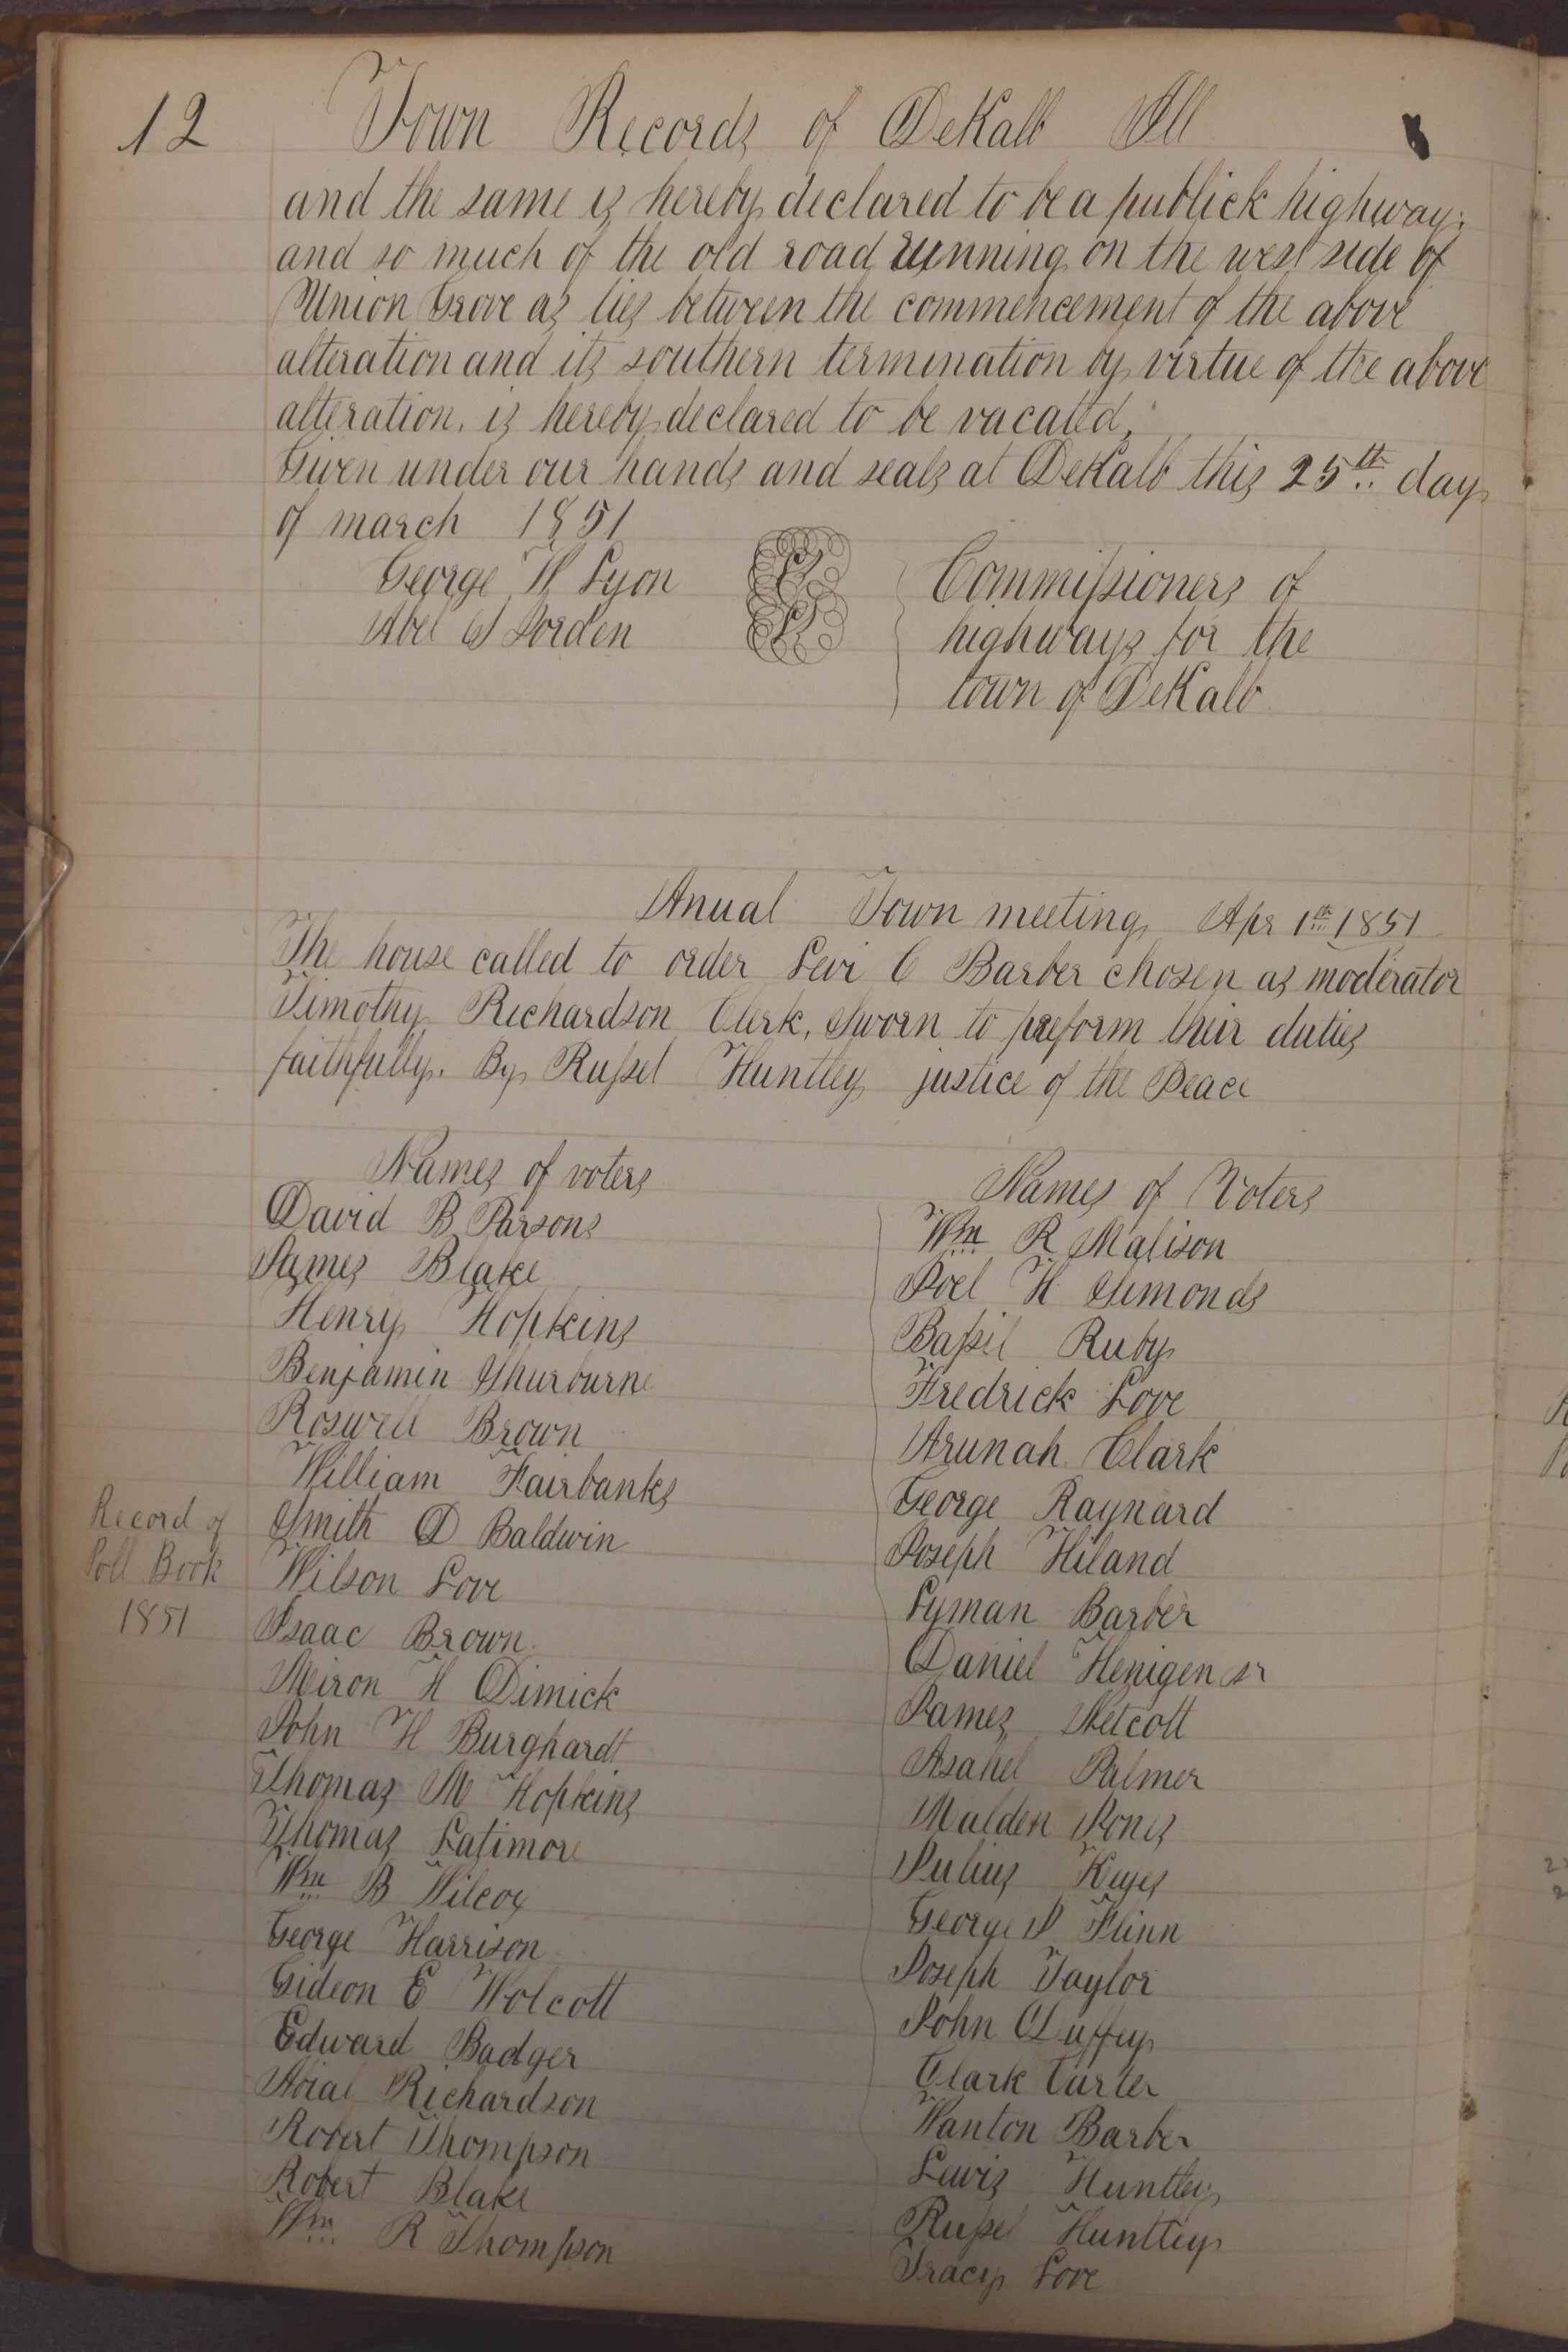 12
Town Records of DeKalb Ill
and the same is hereby declared to be a publick highway;
and so much of the old road running on the west side of
Union Grove as lies between the commencement of the above
alteration and its southern termination by virtue of the above
alteration, is hereby declared to be vacated;
Given under our hands and seals at DeKalb this 25th day
of march 1851
George H Lyon
Abel S Jorden
Commissioners of
highways for the
town of DeKalb
Anual Town meeting Apr 1th 1851
The house called to order Levi C Barber chosen as moderator
Timothy Richardson Clerk, Sworn to preform their duties
faithfully. By Russel Huntley justice of the Peace
Names of voters
David B Parsons
James Blake
Henry Hopkins
Benjamin Shurburne
Roswell Brown
William Fairbanks
Smith D Baldwin
Wilson Love
Isaac Brown
Miron H Dimick
John H Burghardt
Thomas M Hopkins
Thomas Latimore
Wm B Wilcox
George Harrison
Gideon E Wolcott
Edward Badger
Abial Richardson
Robert Thompson
Robert Blake
Wm R Thompson
Record of
Poll Book
1851
Names of Voters
Wm R Malison
Joel H Simonds
Bassil Ruby
Fredrick Love
Arunah Clark
George Raynard
Joseph Hiland
Lyman Barber
Daniel Henigen sr
James Netcott
Asahel Palmer
Malden Jones
Julius Keyes
George J Flinn
Joseph Taylor
John Duffey
Clark Carter
Wanton Barber
Lewis Huntley
Russel Huntley
Tracy Love